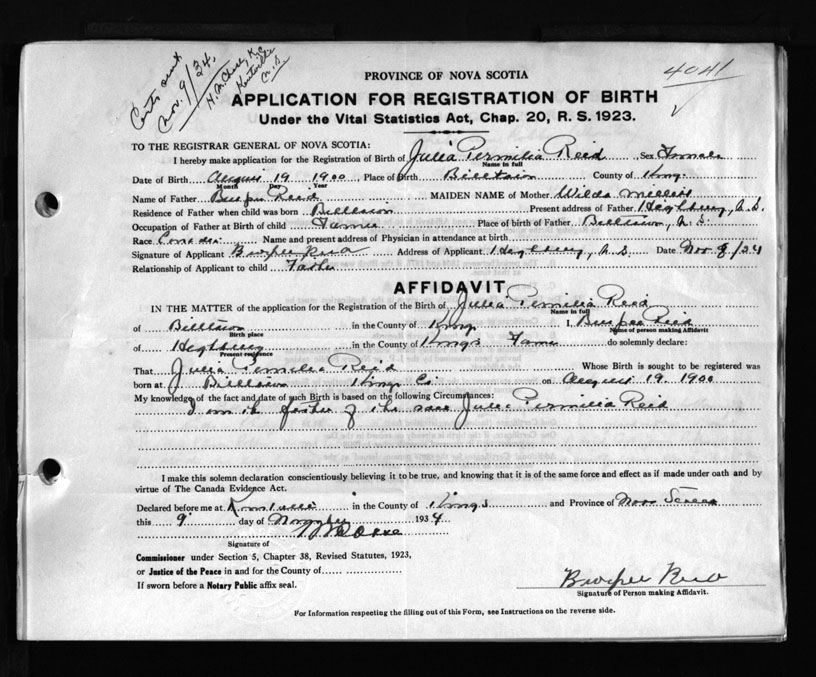 Nov. 9/34.
4041
PROVINCE OF NOVA SCOTIA
APPLICATION FOR REGISTRATION OF BIRTH
Under the Vital Statistics Act, Chap. 20, R. S. 1923.
TO THE REGISTRAR GENERAL OF NOVA SCOTIA:
I hereby make application for the Registration of Birth of Julia Permilia Reid Sex Female
Name in full
Date of Birth August 19 1900 Place of Birth Billtown County of Kings
Month Day Year
Name of Father Burpee Reid MAIDEN NAME of Mother Wilda
Residence of Father when child was born Billtown Present address of Father N.S.
Occupation of Father at Birth of child Farmer Place of birth of Father Billtown, N.S.
Race Name and present address of Physician in attendance at birth
Signature of Applicant Burpee Reid Address of Applicant N.S. Date Nov 9/34
Relationship of Applicant to child Father
AFFIDAVIT
IN THE MATTER of the application for the Registration of the Birth of Julia Permilia Reid
Name in full
of Billtown in the County of Kings I, Burpee Reid
Birth place Name of person making Affidavit
of in the County of Kings do solemnly declare:
Present residence
That Julia Permilia Reid Whose Birth is sought to be registered was
born at Billtown Kings Co on August 19. 1900
My knowledge of the fact and date of such Birth is based on the following Circumstances:
I am the father of the Julia Permilia Reid
I make this solemn declaration conscientiously believing it to be true, and knowing that it is of the same force and effect as if made under oath and by
virtue of The Canada Evidence Act.
Declared before me at in the County of Kings and Province of Nova Scotia
this 9 day of November 1934
Signature of
Commissioner under Section 5, Chapter 38, Revised Statutes, 1923,
or Justice of the Peace in and for the County of
If sworn before a Notary Public affix seal.
Burpee Reid
Signature of Person making Affidavit.
For Information respecting the filling out of this Form, see Instructions on the reverse side.